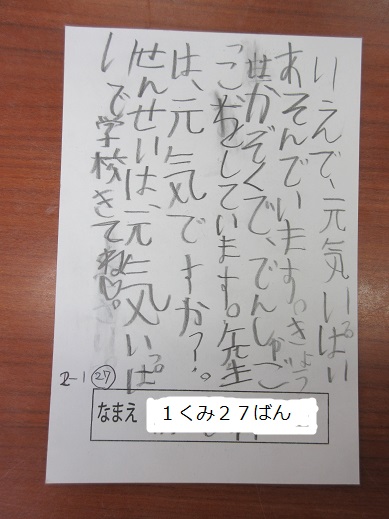 いえんで、元気いっぱい
あそんでいます。きょう
はかぞくで、でんしゃご
こをしています。先生
は、元気ですか?。
せんせいは、元気いっぱ
いで学校きてね。
2-1 ㉗
なまえ 1くみ27ばん